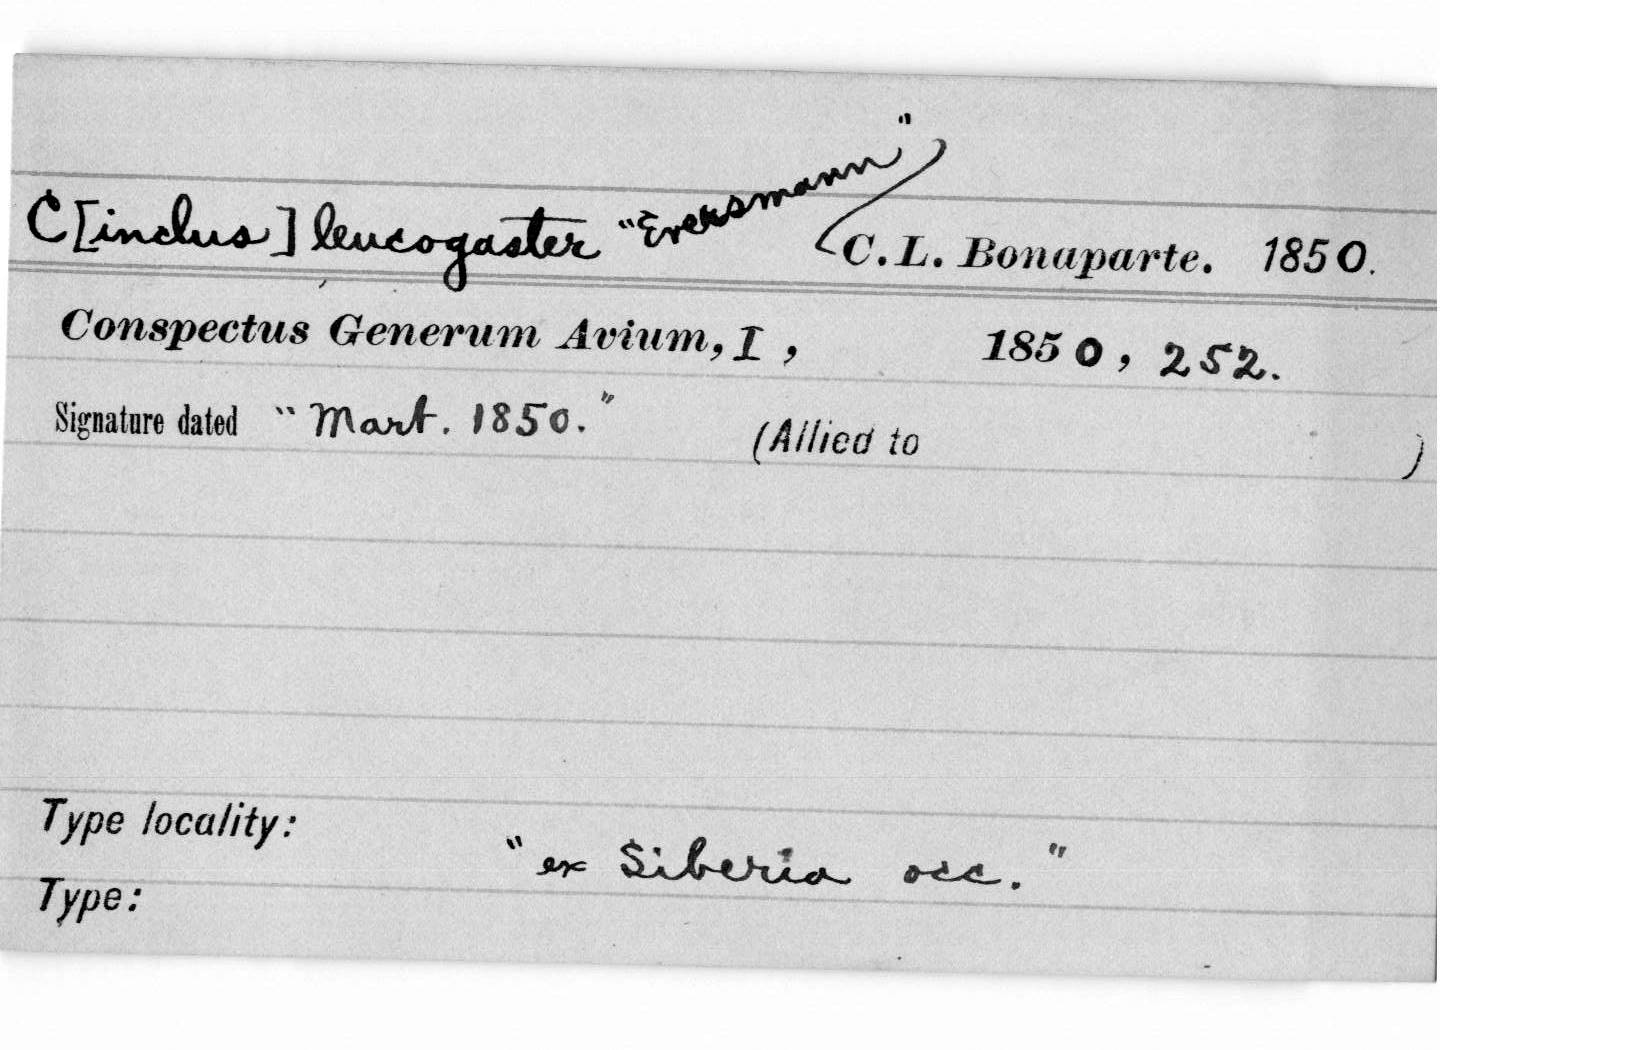 C[inclus] leucogaster "Eversmann" C.L. Bonaparte. 1850.
Conspectus Generum Avium, I, 1850, 252.
Signature dated "Mart. 1850." (Allied to )
Type locality:
"ex Siberia occ."
Type: